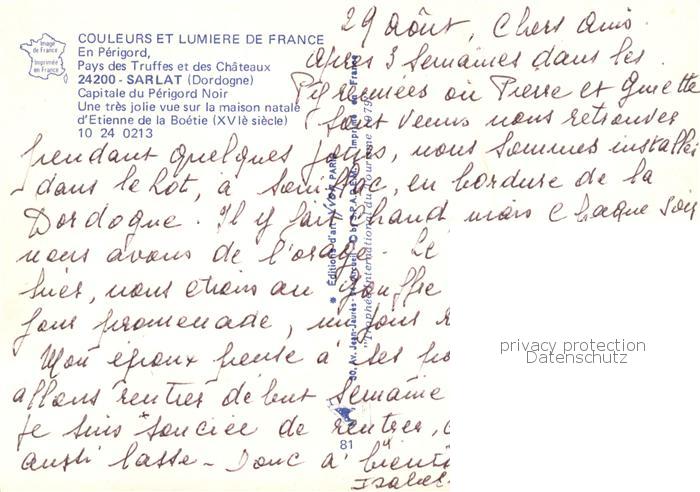 29 août, Chers amis
Image de France
Imprimée en France
COULEURS ET LUMIERE DE FRANCE
En Périgord,
Pays des Truffes et des Châteaux
24200 - SARLAT (Dordogne)
Capitale du Périgord Noir
Une très jolie vue sur la maison natale
d'Etienne de la Boétie (XVIè siècle)
10 24 0213
après 3 semaines dans les
Pyrennées où Pierre et Ginette
sont venus nous retrouver
pendant quelques jours, nous sommes installés
dans le Lot, à Souillac, en bordure de la
Dordogne. Il y fait chaud mais chaque soir
nous avons de l'orage. Le
hier, nous étions au gouffre
jour promenade, un jour
Mon époux pense à ses
allons rentrer début semaine
je suis soucieé de rentrer,
aussi lasse - Donc à bientô
Isabel
* Editions d'art YVON PARIS
"Trophée International du Tourisme 1979"
Imprimé en France
81
privacy protection
Datenschutz